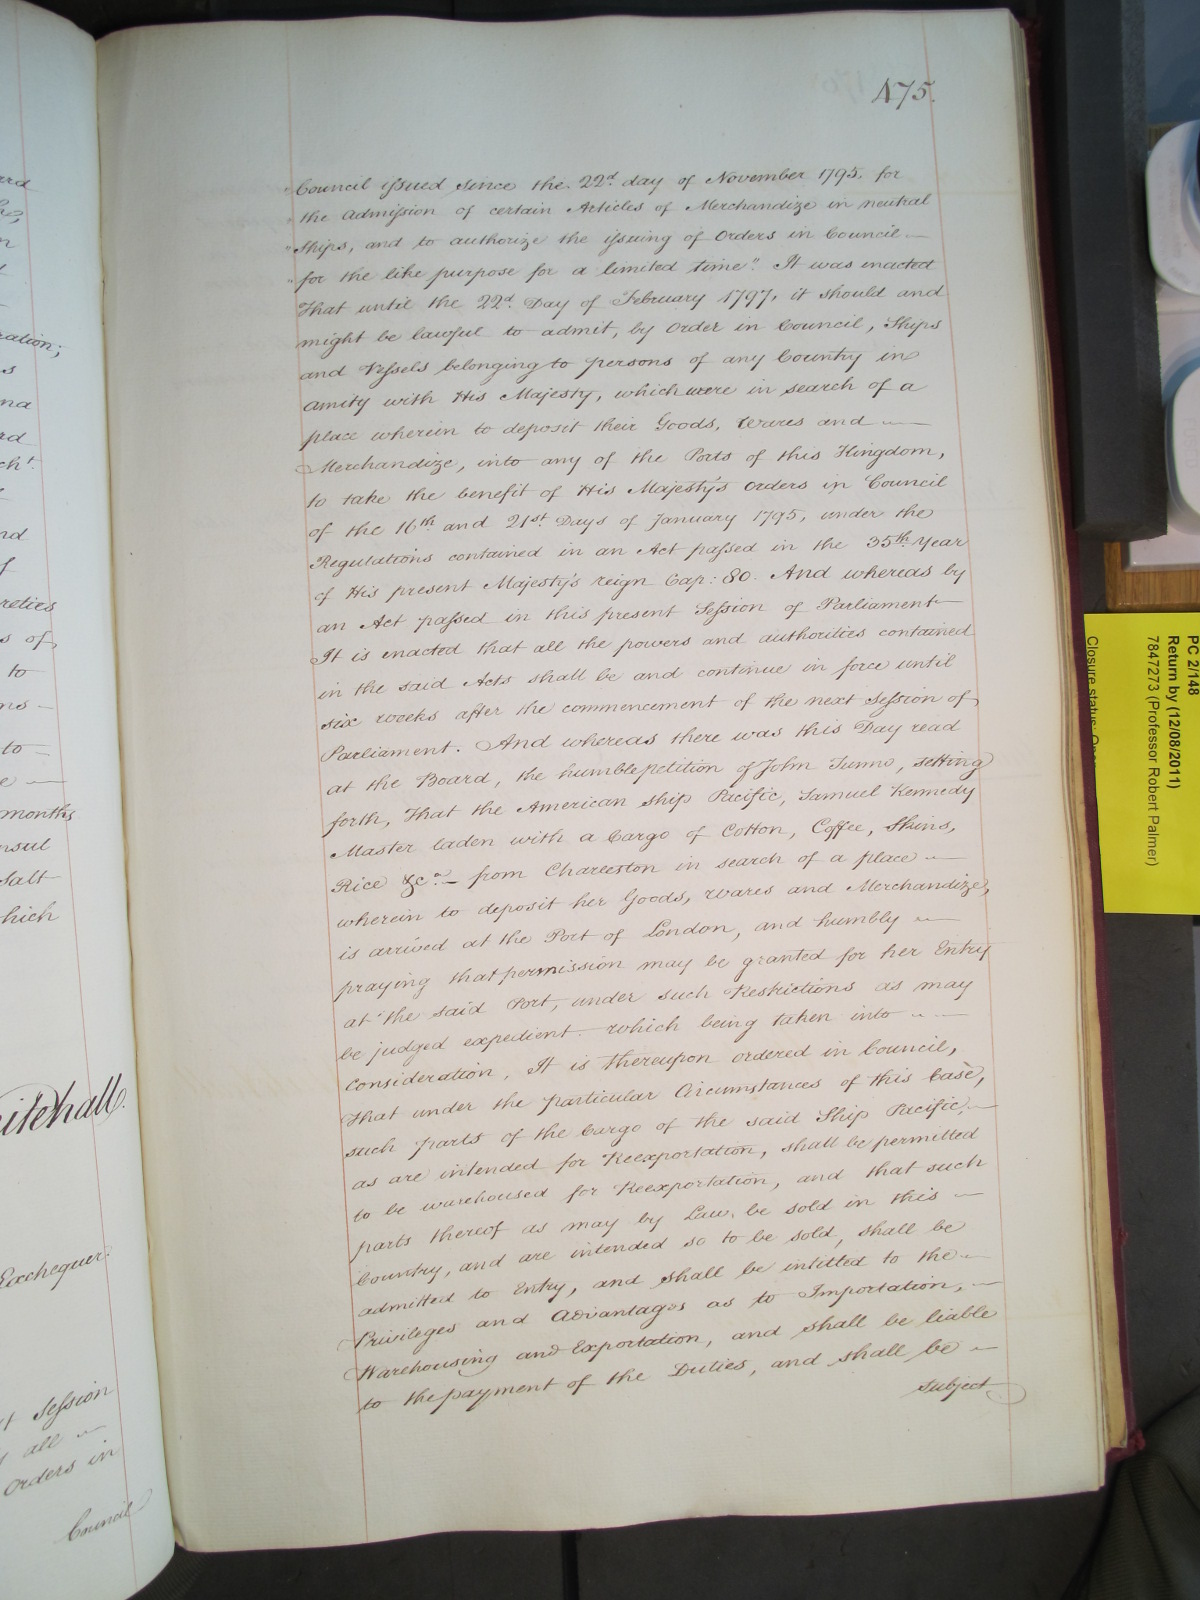 475.
"Council issued since the 22d. day of November 1795. for
"the admission of certain Articles of Merchandize in neutral
"Ships, and to authorize the issuing of Orders in Council —
"for the like purpose for a limited time". It was enacted
That until the 22d. Day of February 1797, it should and
might be lawful to admit, by Order in Council, Ships
and Vessels belonging to persons of any Country in
amity with His Majesty, which were in search of a
place wherein to deposit their Goods, Wares and —
Merchandize, into any of the Ports of this Kingdom,
to take the benefit of His Majesty's Orders in Council
of the 16th and 21st Days of January 1795, under the
Regulations contained in an Act passed in the 35th Year
of His present Majesty's reign Cap: 80. And whereas by
an Act passed in this present Session of Parliament —
It is enacted that all the powers and authorities contained
in the said Acts shall be and continue in force until
six weeks after the commencement of the next Session of
Parliament. And whereas there was this Day read
at the Board, the humble petition of John Tunno, setting
forth, That the American Ship Pacific, Samuel Kennedy
Master laden with a Cargo of Cotton, Coffee, Skins,
Rice &ca. — from Charleston in search of a place —
wherein to deposit her Goods, wares and Merchandize,
is arrived at the Port of London, and humbly —
praying that permission may be granted for her Entry
at the said Port, under such Restrictions as may
be judged expedient. which being taken into —
Consideration, It is thereupon ordered in Council,
That under the particular Circumstances of this Case,
such parts of the Cargo of the said Ship Pacific, —
as are intended for Reexportation, shall be permitted
to be warehoused for Reexportation, and that such
parts thereof as may by Law, be sold in this —
Country, and are intended so to be sold, shall be
admitted to Entry, and shall be intitled to the —
Privileges and Advantages as to Importation, —
Warehousing and Exportation, and shall be liable
to the payment of the Duties, and shall be —
subject
ration;
months
nsul
Salt
which
itehall.
Exchequer:
Session
all —
Orders in
Council
PC 2/148
Return by (12/08/2011)
7847273 (Professor Robert Palmer)
Closure status: